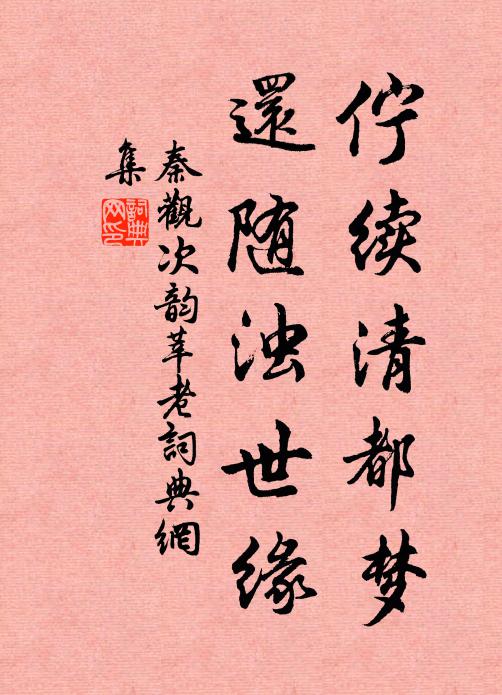 佇续清都梦
還随浊世缘
秦觀次韵莘老詞典網
集
詞典网印